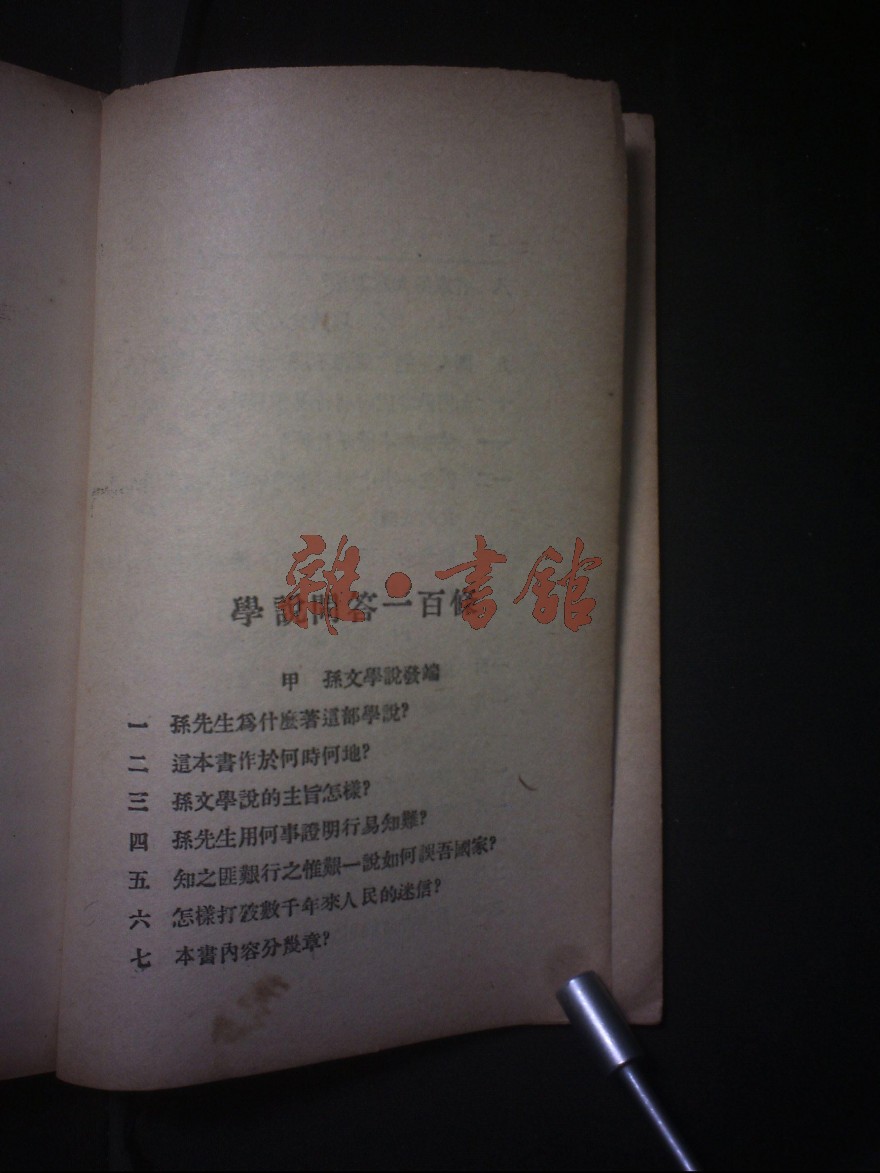 學說問答一百條
雜·書館
甲 孫文學說發端
一 孫先生爲什麼著這部學說?
二 這本書作於何時何地?
三 孫文學說的主旨怎樣?
四 孫先生用何事證明行易知難?
五 知之匪艱行之惟艱一說如何誤吾國家?
六 怎樣打破數千年來人民的迷信?
七 本書內容分幾章?